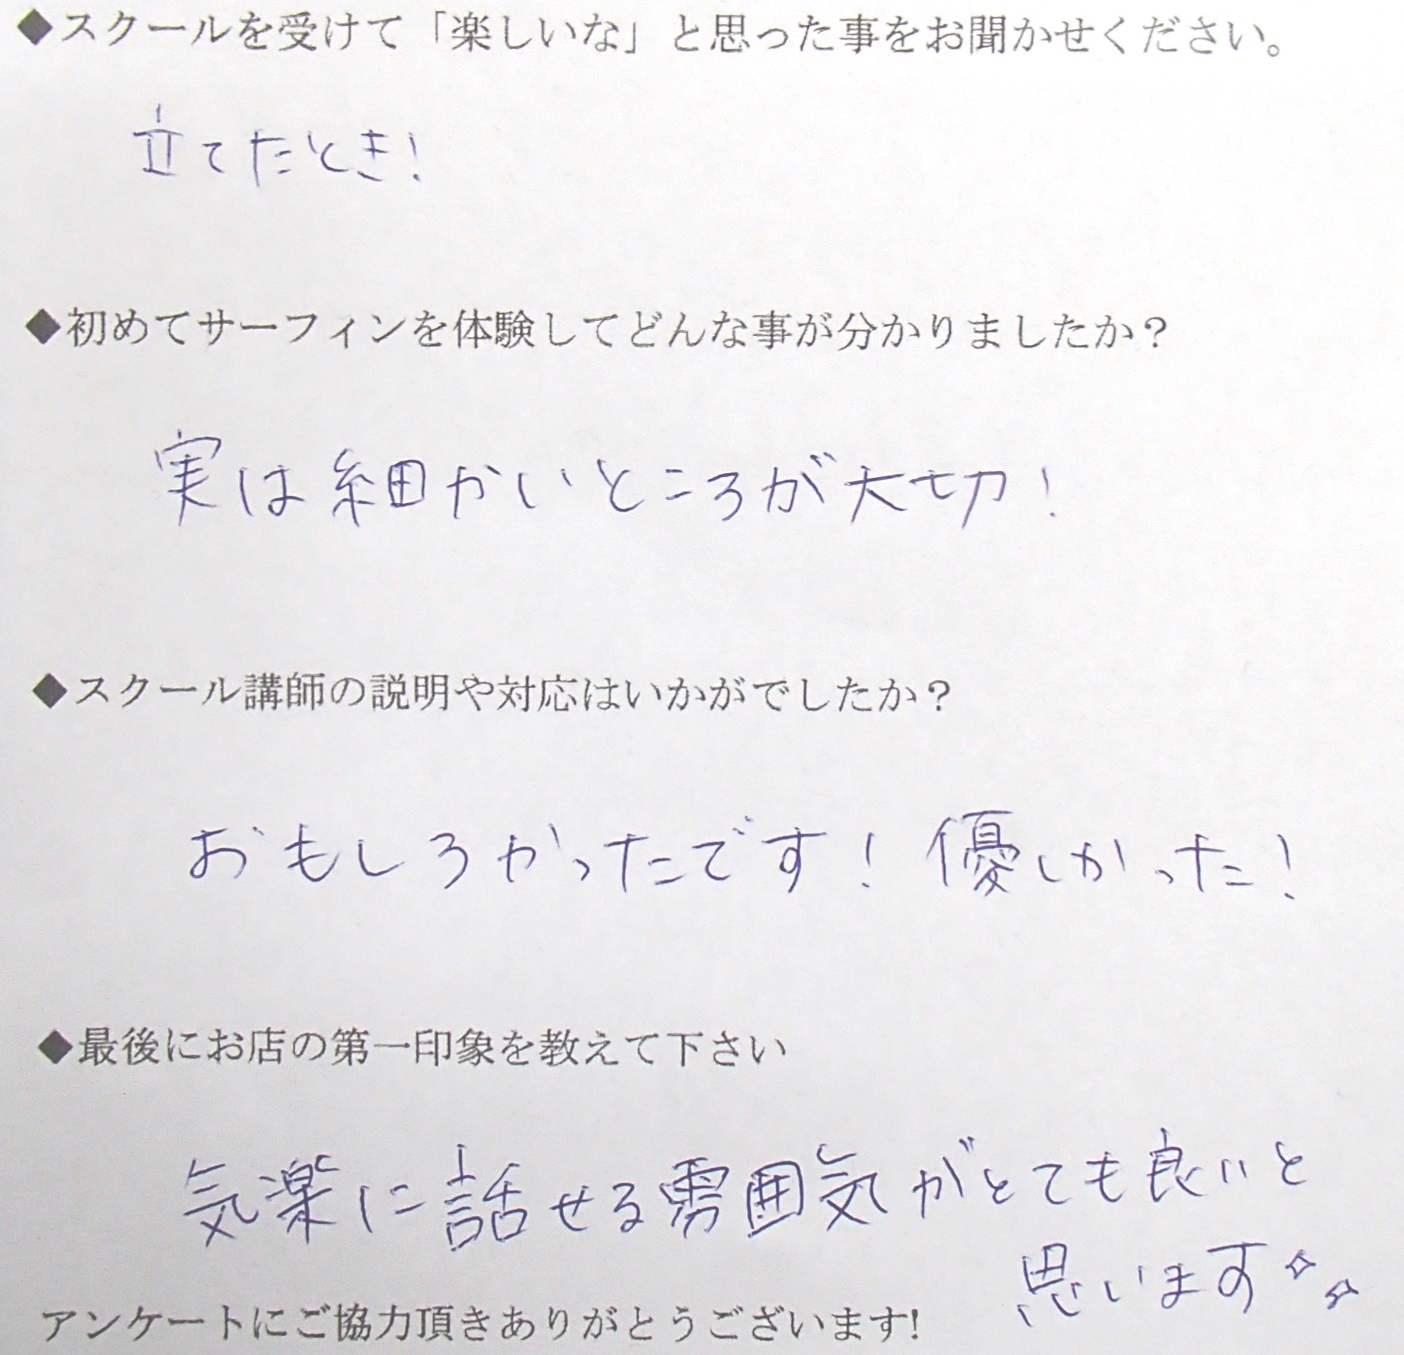 ◆スクールを受けて「楽しいな」と思った事をお聞かせください。
立てたとき!
◆初めてサーフィンを体験してどんな事が分かりましたか?
実は細かいところが大切!
◆スクール講師の説明や対応はいかがでしたか?
おもしろかったです! 優しかった!
◆最後にお店の第一印象を教えて下さい
気楽に話せる雰囲気がとても良いと
思います
アンケートにご協力頂きありがとうございます!